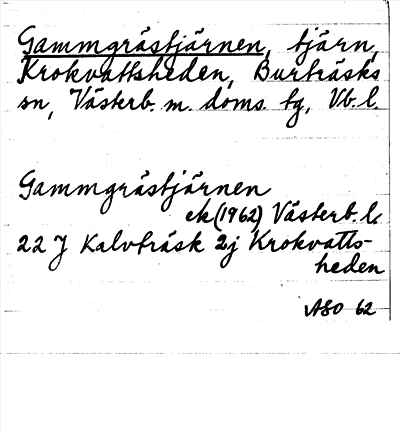 Gammgråstjärnen, tjärn,
Krokvattsheden, Burträsks
sn, Västerb. m. doms. tg, Vb. l.
Gammgråstjärnen
ek (1962) Västerb. l.
22 J Kalvträsk 2j Krokvatts-
heden
ASO 62